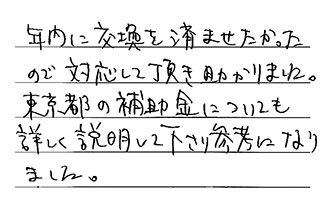 年内に交換を済ませたかった
ので対応して頂き助かりました。
東京都の補助金についても
詳しく説明して下さり参考になり
ました。